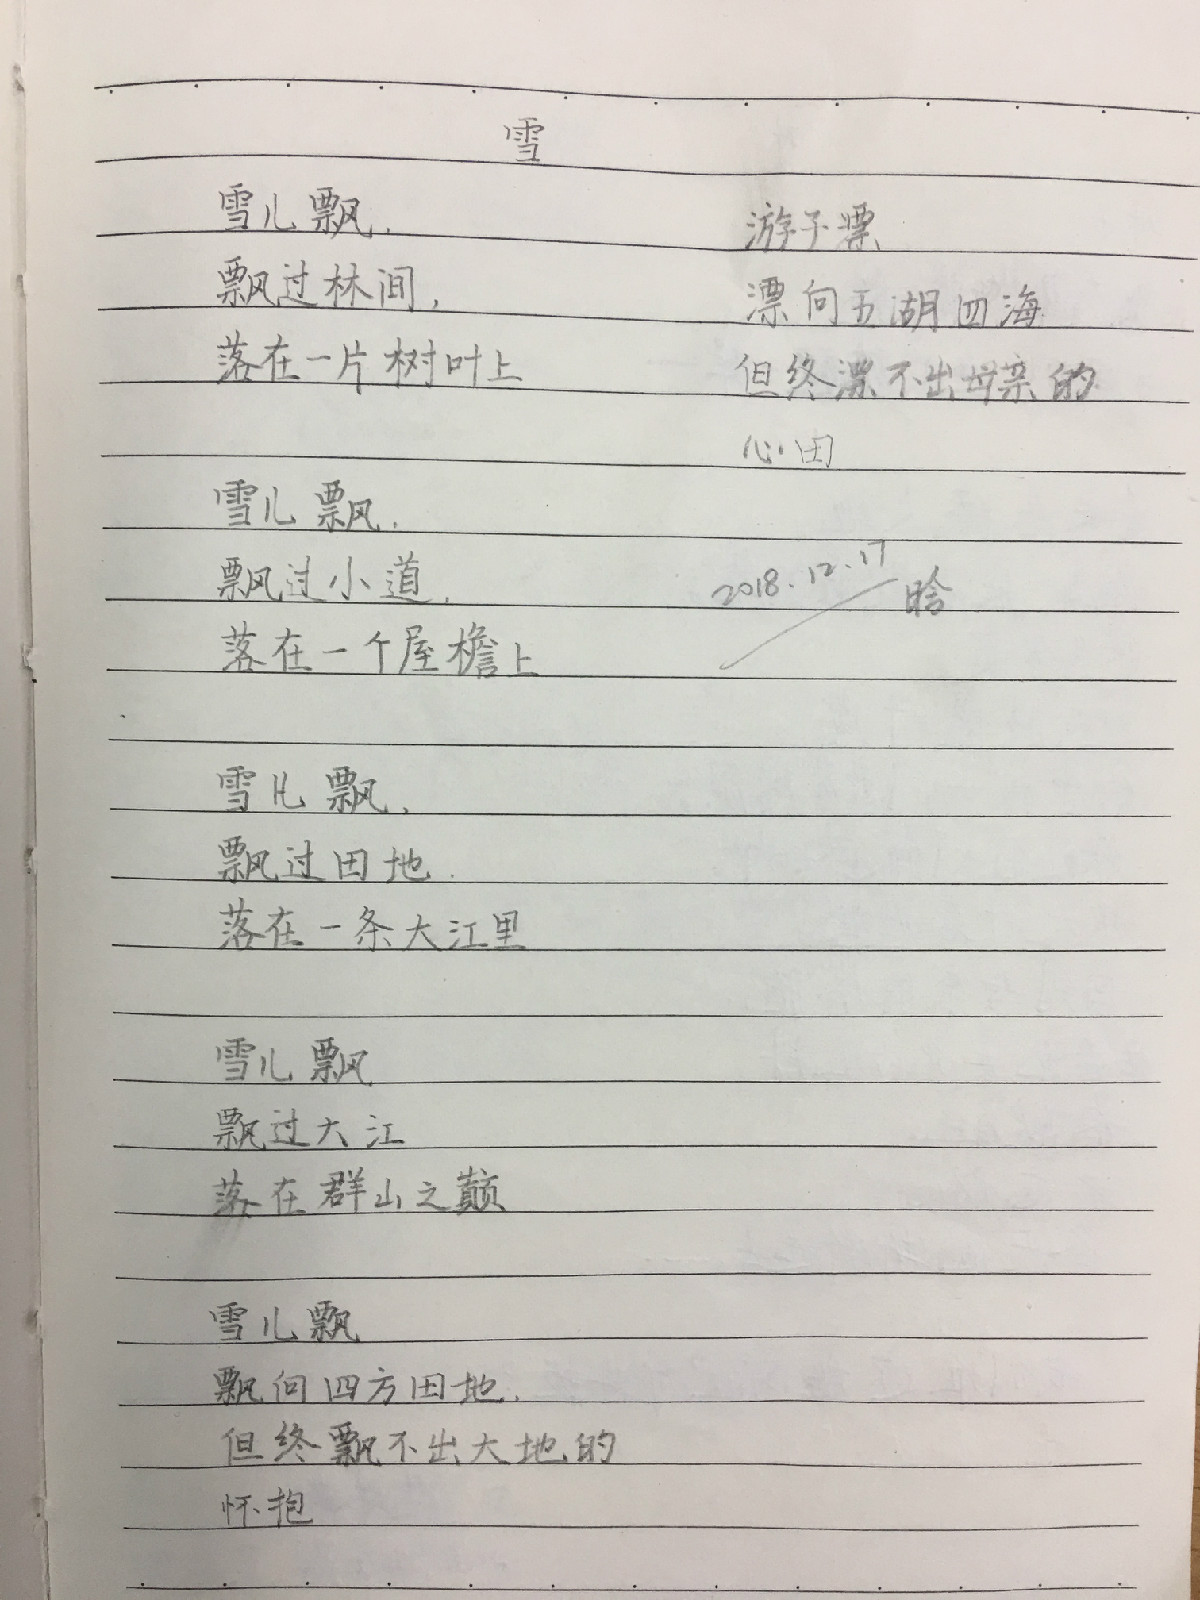 雪
雪儿飘，
飘过林间，
落在一片树叶上
雪儿飘，
飘过小道，
落在一个屋檐上
雪儿飘，
飘过田地，
落在一条大江里
雪儿飘
飘过大江
落在群山之巅
雪儿飘
飘向四方田地，
但终飘不出大地的
怀抱
游子漂
漂向五湖四海
但终漂不出母亲的
心田
2018.12.17
晗